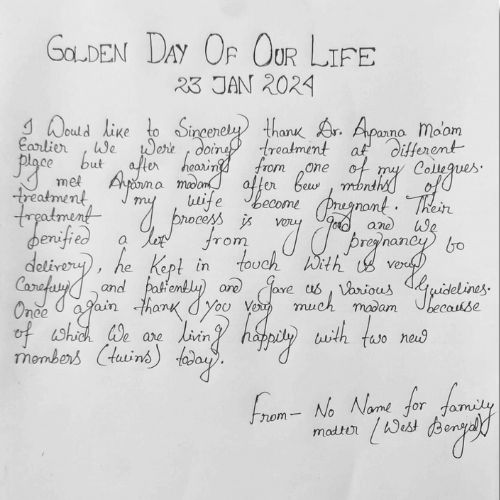 GOLDEN DAY OF OUR LIFE
23 JAN 2024
I Would like to Sincerely thank Dr. Aparna Ma'am
Earlier We Were doing treatment at different
place but after hearing from one of my Collegues.
I met Aparna madam after bew months of
treatment, my wife become pregnant. Their
treatment process is very good and We
benified a lot from pregnancy to
delivery, he Kept in touch With us very
Carefuly and patiently and Gave us Various Guidelines.
Once again thank you very much madam because
of which We are living happily with two new
members (twins) today.
From - No Name for family
matter (West Bengal)